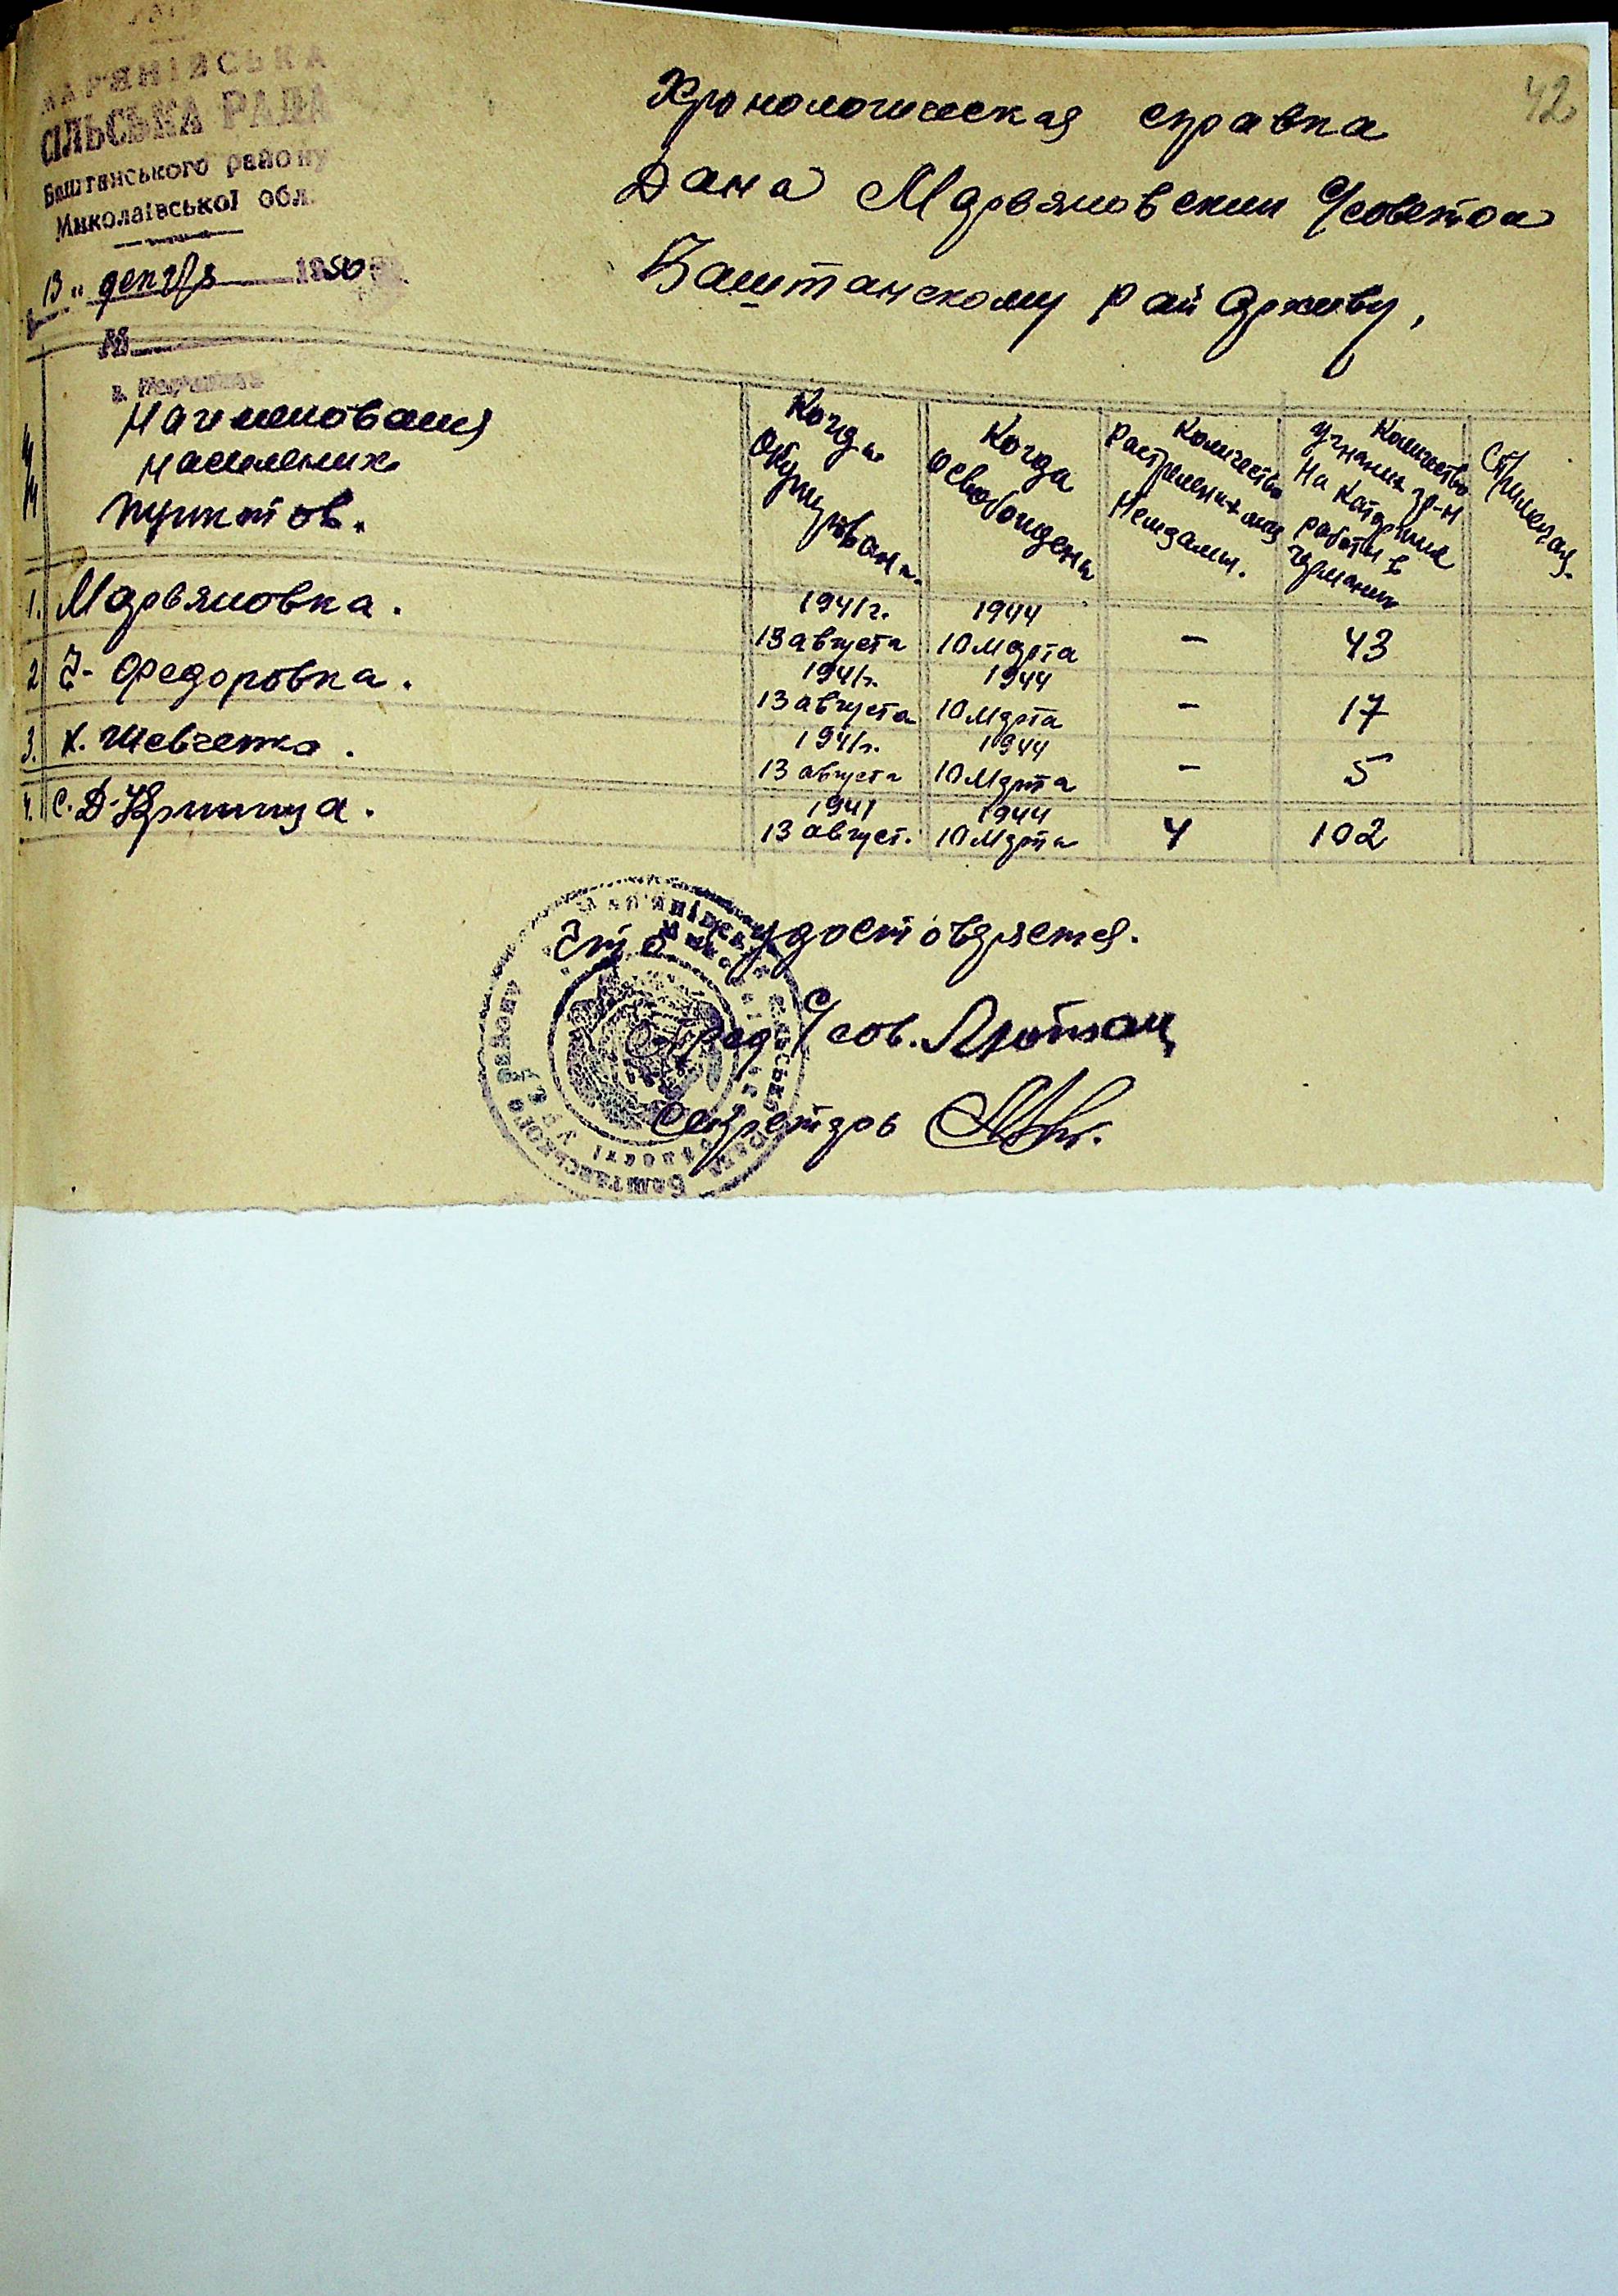 42
МАР'ЯНІВСЬКА
СІЛЬСЬКА РАДА
Баштанського району
Миколаївської обл.
13 " декабр 1950
№
с. Мар'янівка
Хронологическая справка
Дана Марьяновским с/советом
Баштанскому рай архиву,
Наименования
населених
пунктов.
Когда
Окупирована.
Когда
Освобождена
Количество
растреленых
Немцами.
Количество
угнаних гр-н
На каторжние
работы в
германию
1. Марьяновка.
1941г. 13 августа
1944 10 Марта
-
43
2 Федоровка.
1941г. 13 августа
1944 10 Марта
-
17
3. х. Шевченко.
1941г. 13 августа
1944 10 Марта
-
5
4. с. Д-Криница.
1941 13 август.
1944 10 Марта
4
102
удостоверяется.
Пред с/сов.
Секретарь